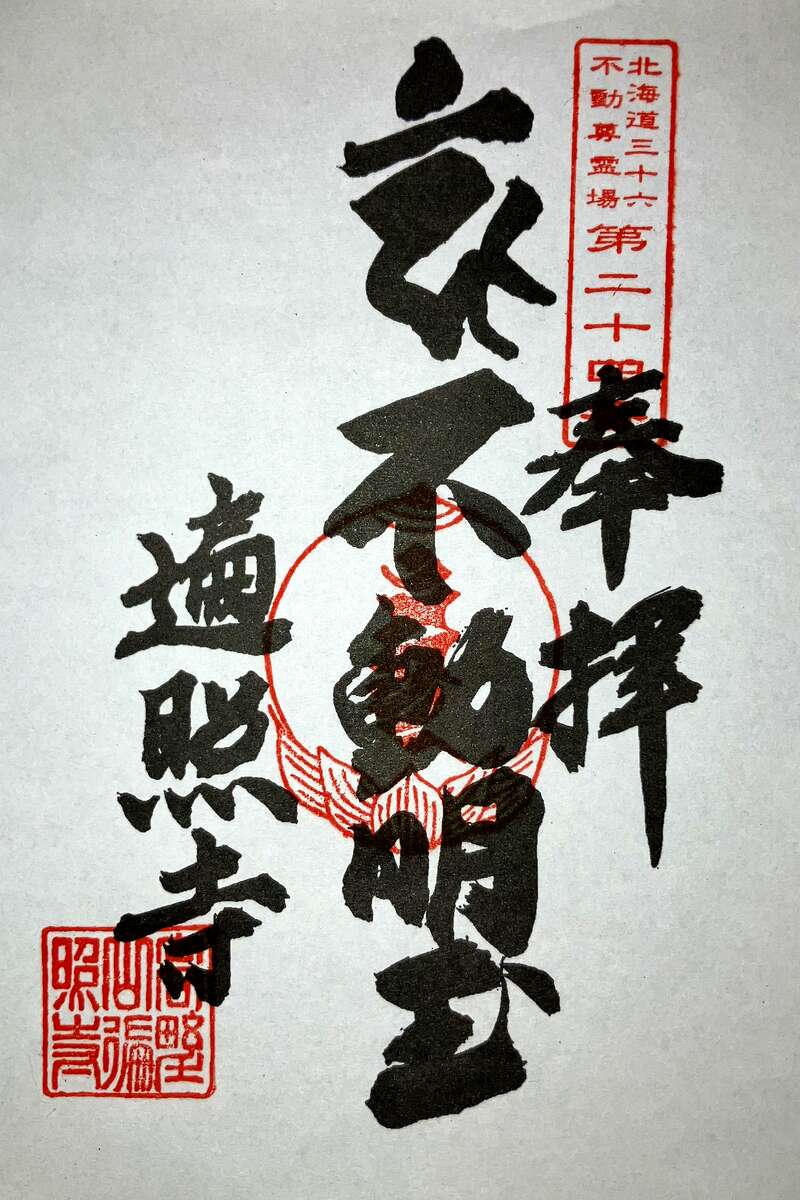 北海道三十六
不動尊霊場
第二十四
奉拝
不動明王
遍照寺
高野
山遍
照寺